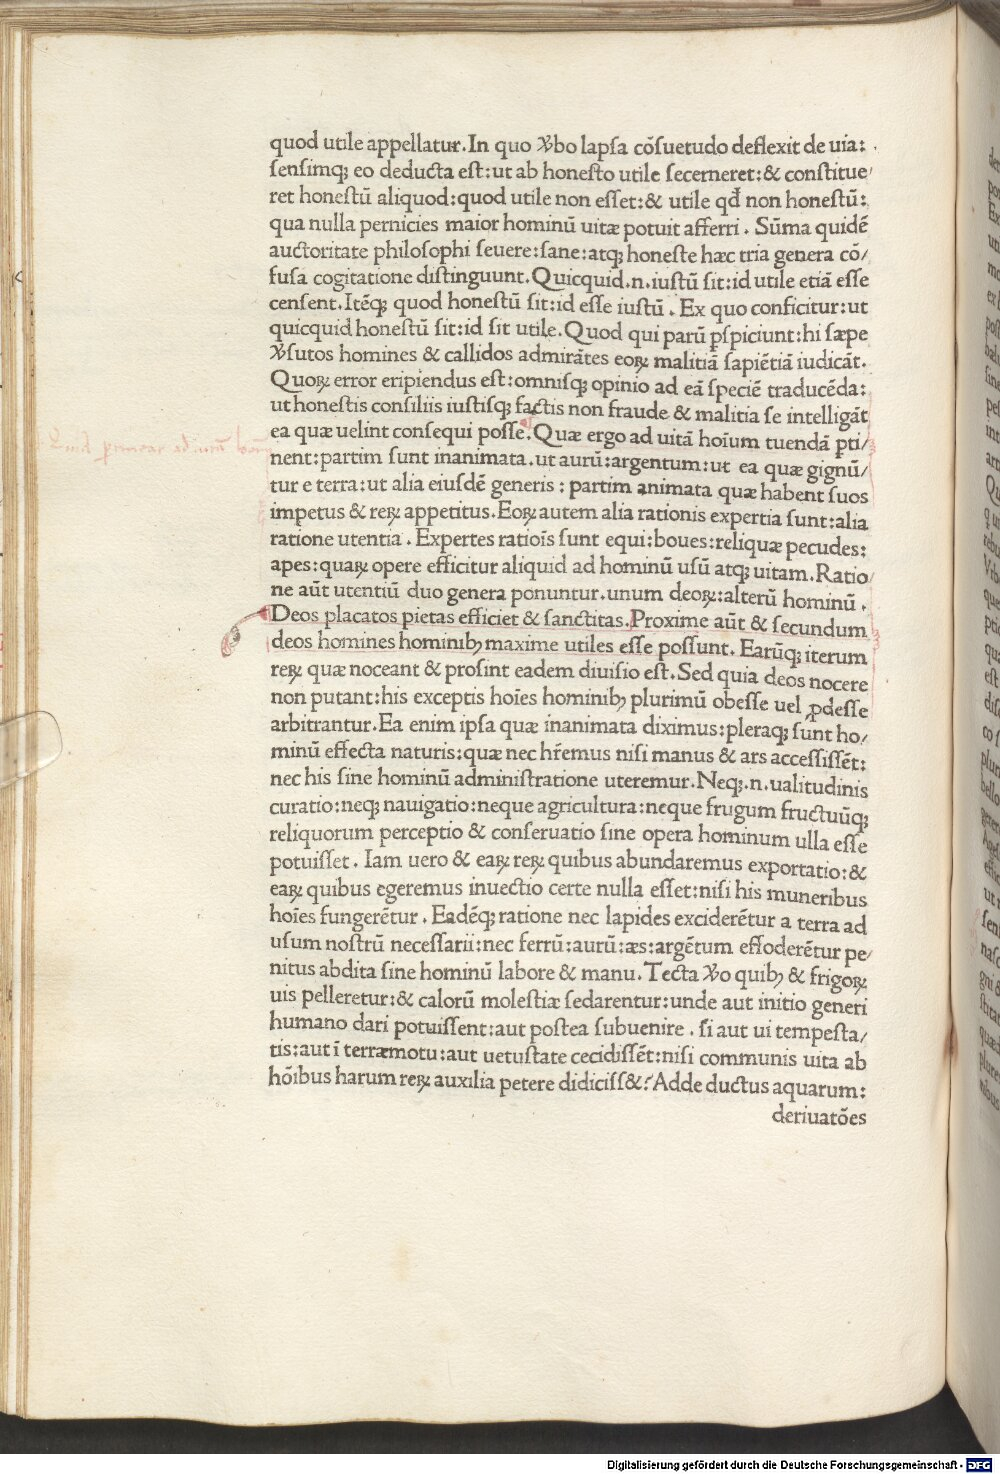 quod utile appellatur. In quo ꝟbo lapſa cõſuetudo deflexit de uia:
ſenſimqꝫ eo deducta eſt: ut ab honeſto utile ſecerneret: & conſtitue/
ret honeſtũ aliquod: quod utile non eſſet: & utile qđ non honeſtũ:
qua nulla pernicies maior hominũ uitæ potuit afferri. Sũma quidẽ
auctoritate philoſophi ſeuere: ſane: atqꝫ honeſte hæc tria genera cõ/
fuſa cogitatione diſtinguunt. Quicquid .n. iuſtũ ſit: id utile etiã eſſe
cenſent. Itẽqꝫ quod honeſtũ ſit: id eſſe iuſtũ. Ex quo conficitur: ut
quicquid honeſtũ ſit: id ſit utile. Quod qui parũ ꝑſpiciunt: hi ſæpe
ꝟſutos homines & callidos admirãtes eoꝝ malitiã ſapiẽtiã iudicãt.
Quoꝝ error eripiendus eſt: omniſqꝫ opinio ad eã ſpeciẽ traducẽda:
ut honeſtis conſiliis iuſtiſqꝫ factis non fraude & malitia ſe intelligãt
ea quæ uelint conſequi poſſe. Quæ ergo ad uitã hoĩum tuendã ꝑti/
nent: partim ſunt inanimata. ut aurũ: argentum: ut ea quæ gignũ/
tur e terra: ut alia eiuſdẽ generis: partim animata quæ habent ſuos
impetus & reꝝ appetitus. Eoꝝ autem alia rationis expertia ſunt: alia
ratione utentia. Expertes ratiõis ſunt equi: boues: reliquæ pecudes:
apes: quaꝝ opere efficitur aliquid ad hominũ uſũ atqꝫ uitam. Ratio/
ne aũt utentiũ duo genera ponuntur. unum deoꝝ: alterũ hominũ.
Deos placatos pietas efficiet & ſanctitas. Proxime aũt & ſecundum
deos homines hominibꝫ maxime utiles eſſe poſſunt. Earũqꝫ iterum
reꝝ quæ noceant & proſint eadem diuiſio eſt. Sed quia deos nocere
non putant: his exceptis hoĩes hominibꝫ plurimũ obeſſe uel ꝓdeſſe
arbitrantur. Ea enim ipſa quæ inanimata diximus: pleraqꝫ ſunt ho/
minũ effecta naturis: quæ nec hr̃emus niſi manus & ars acceſſiſſẽt:
nec his ſine hominũ adminiſtratione uteremur. Neqꝫ .n. ualitudinis
curatio: neqꝫ nauigatio: neque agricultura: neque frugum fructuũqꝫ
reliquorum perceptio & conſeruatio ſine opera hominum ulla eſſe
potuiſſet. Iam uero & eaꝝ reꝝ quibus abundaremus exportatio: &
eaꝝ quibus egeremus inuectio certe nulla eſſet: niſi his muneribus
hoĩes fungerẽtur. Eadẽqꝫ ratione nec lapides exciderẽtur a terra ad
uſum noſtrũ neceſſarii: nec ferrũ: aurũ: æs: argẽtum effoderẽtur pe/
nitus abdita ſine hominũ labore & manu. Tecta ꝟo quibꝫ & frigoꝝ
uis pelleretur: & calorũ moleſtiæ ſedarentur: unde aut initio generi
humano dari potuiſſent: aut poſtea ſubuenire. ſi aut ui tempeſta/
tis: aut ĩ terræmotu: aut uetuſtate cecidiſſẽt: niſi communis uita ab
hõibus harum reꝝ auxilia petere didiciſſ&? Adde ductus aquarum:
deriuatões
Digitalisierung gefördert durch die Deutsche Forschungsgemeinschaft - DFG